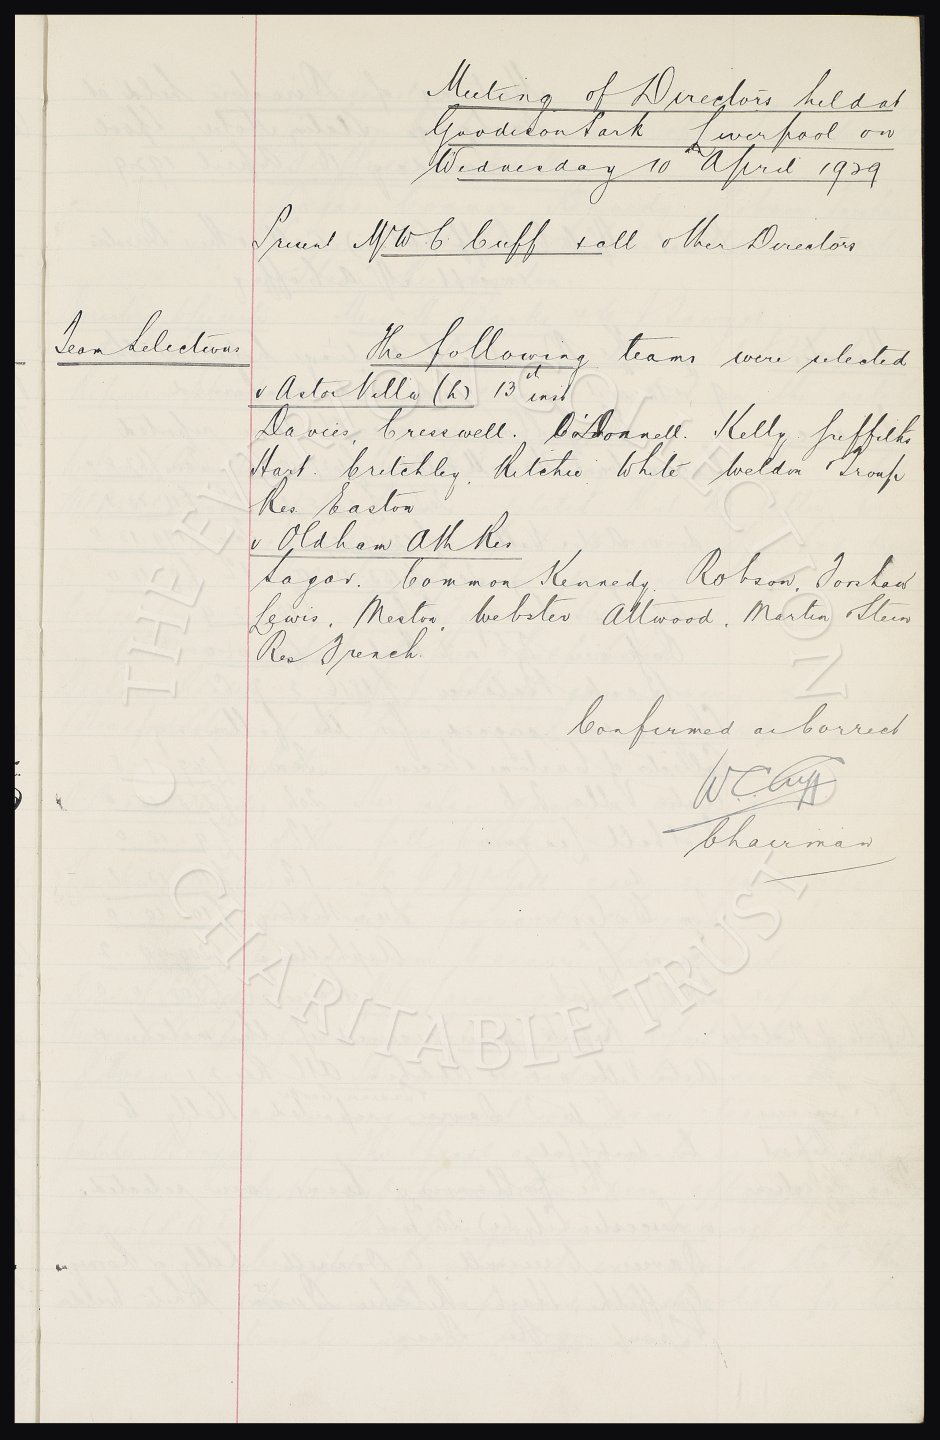 Meeting of Directors held at
Goodison Park Liverpool on
Wednesday 10th April 1929
Present Mr W C Cuff & all other Directors
Team Selections
The following teams were selected
v Aston Villa (h) 13th inst
Davies, Cresswell. O'Donnell. Kelly. Griffiths
Hart. Critchley, Ritchie White Weldon Troup
Res Easton
v Oldham Ath Res
Sagar. Common Kennedy, Robson, Forshaw
Lewis, Meston, Webster Attwood, Martin Stein
Res French.
Confirmed as Correct
W.C. Cuff
Chairman
© THE EVERTON COLLECTION
CHARITABLE TRUST